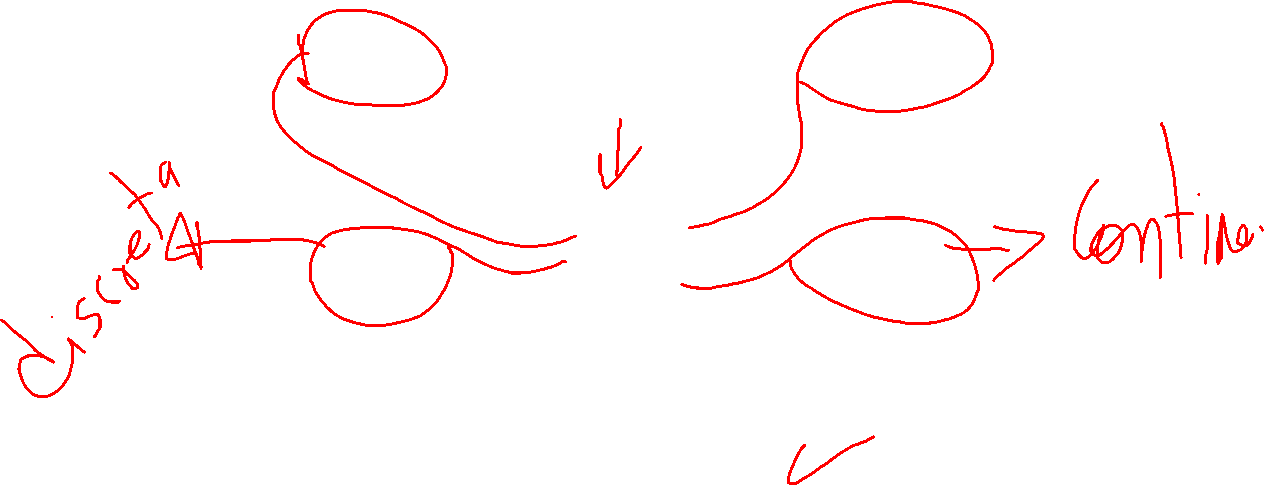 discreta
Contine.